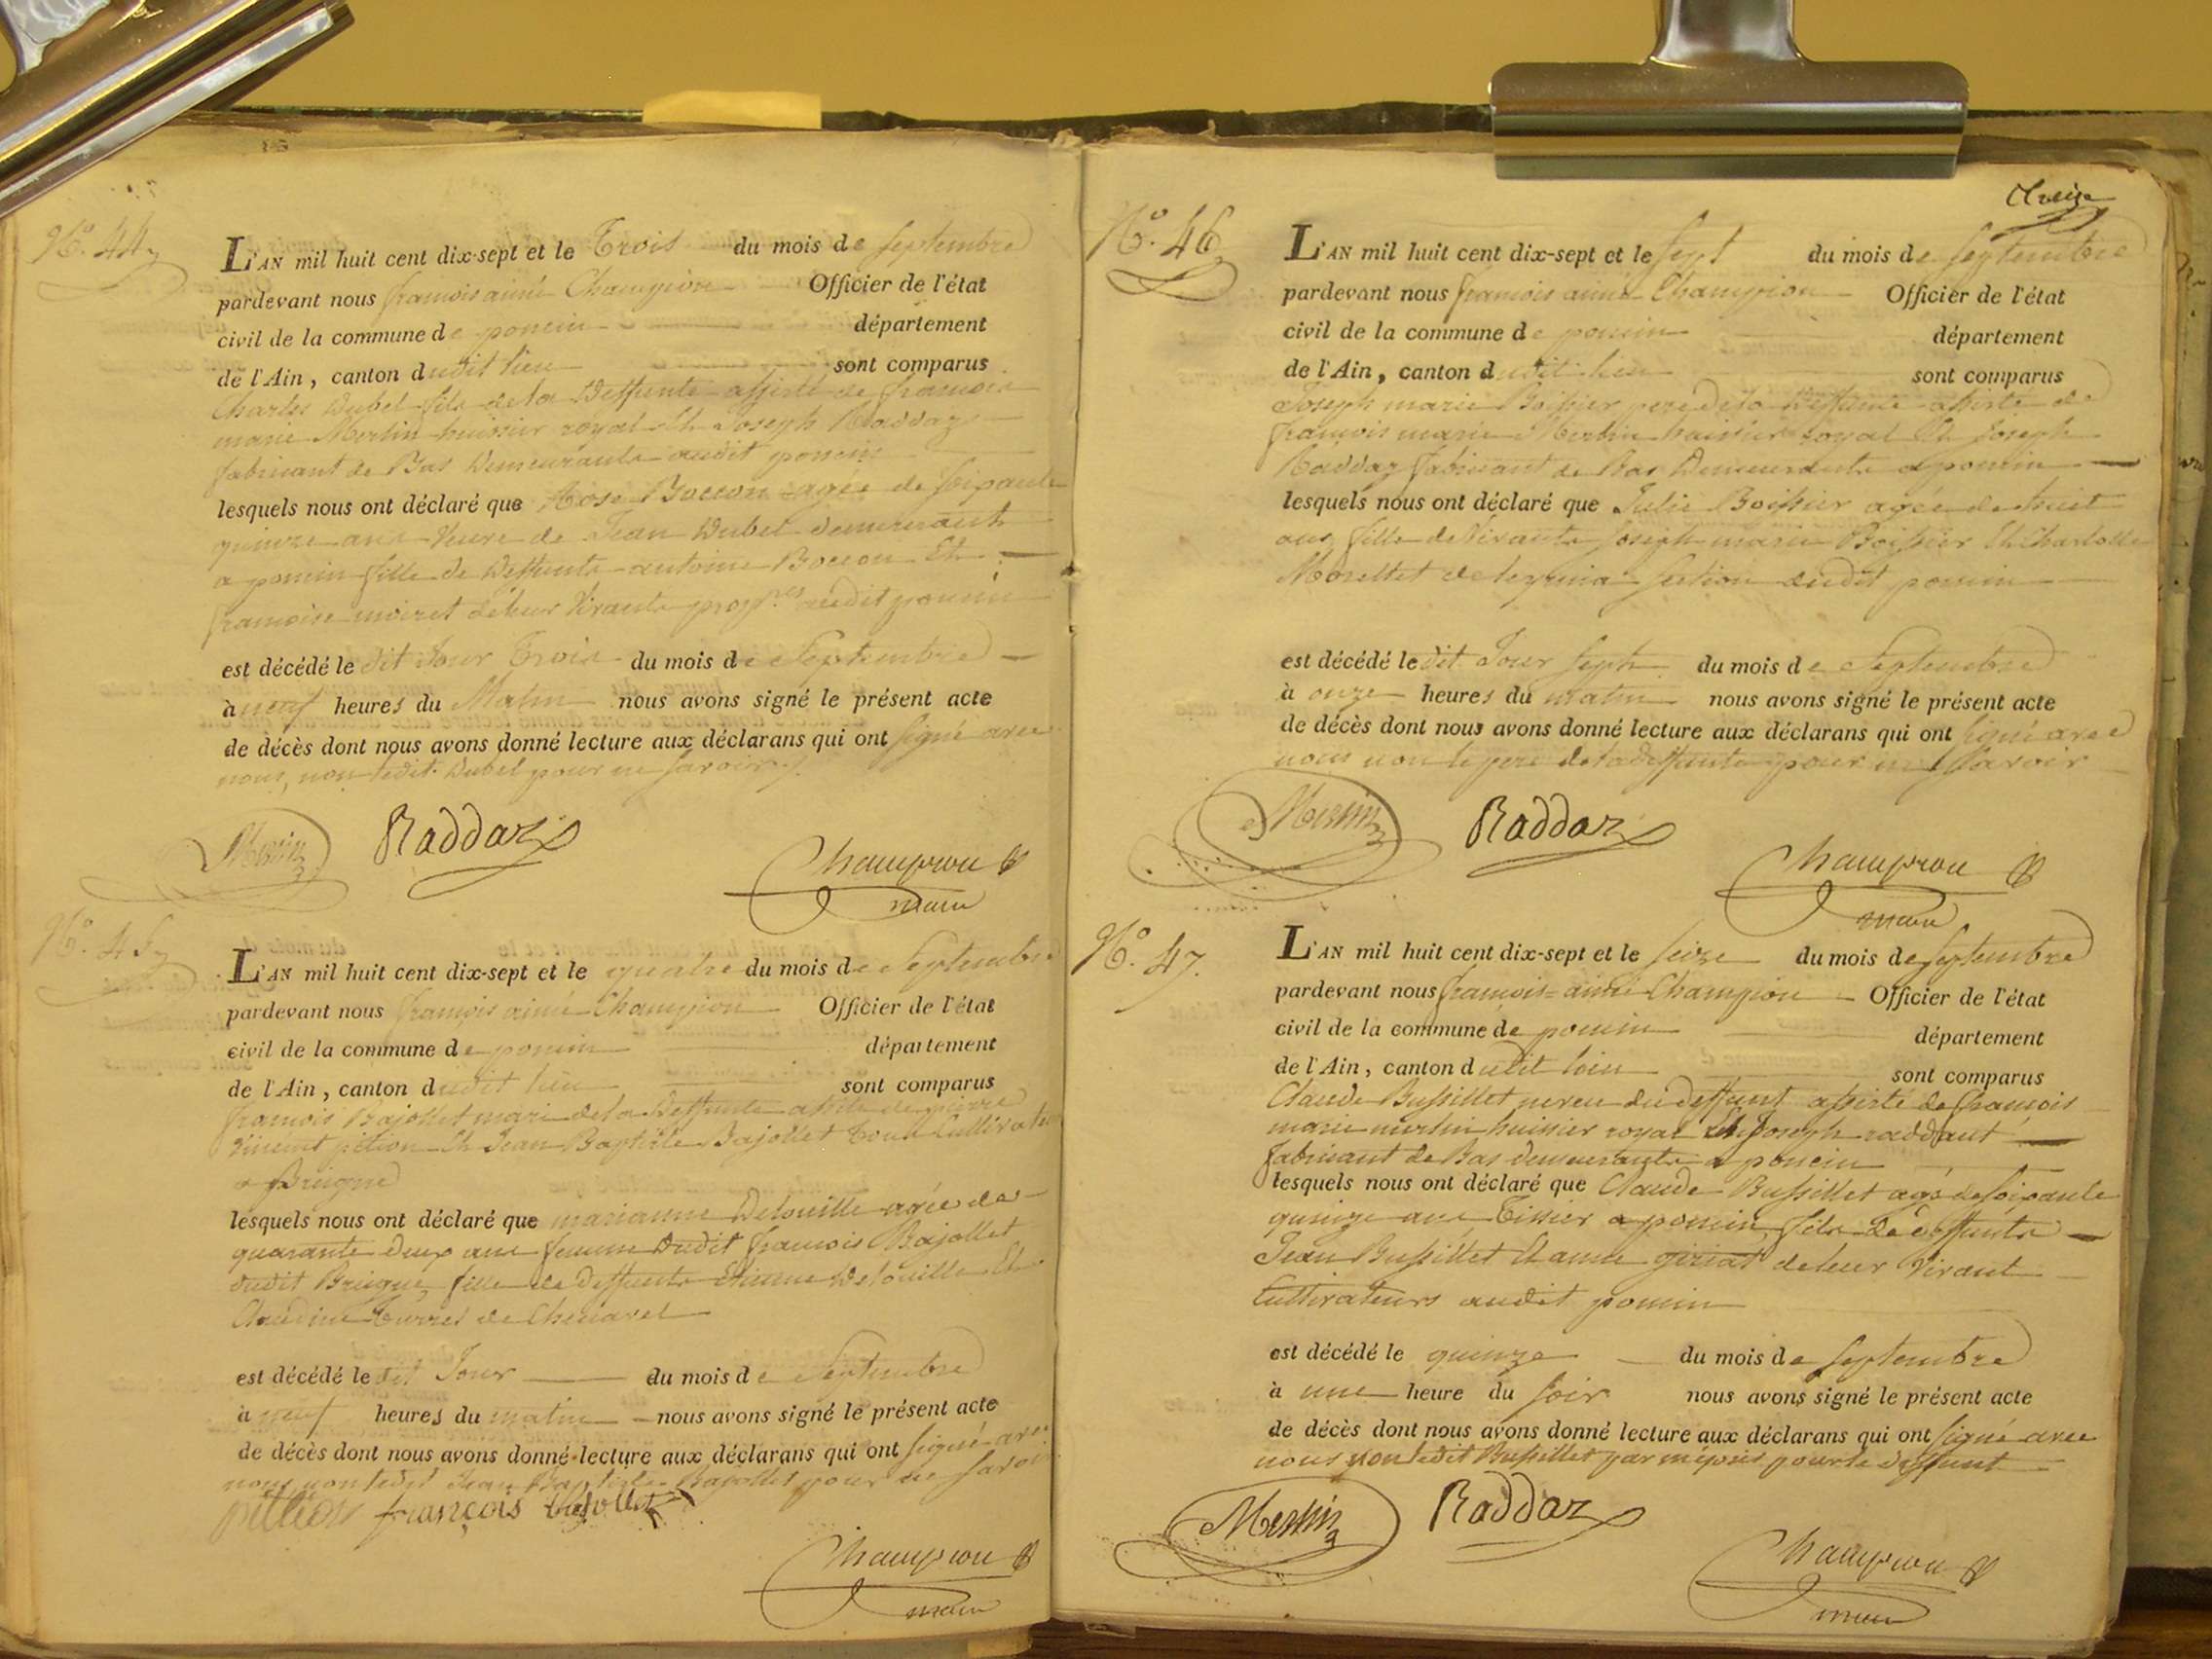 N.º 44
L'AN mil huit cent dix-sept et le Trois du mois de Septembre
pardevant nous françois aimé Champion Officier de l'état
civil de la commune de poncin département
de l'Ain, canton dudit lieu sont comparus
Charles Dubel fils de la Deffunte assisté de françois
marie Merlin huissier royal Et Joseph Raddaz
fabricant de Bas Demeurants audit poncin
lesquels nous ont déclaré que Rose Boccon agée de soixante
quinze ans Veuve de Jean Dubel demeurant
a poncin fille de Deffunts antoine Boccon Et
francoise moiret de leur Vivants prop.res audit poncin
est décédé le dit Jour Trois du mois de Septembre
à neuf heures du Matin nous avons signé le présent acte
de décès dont nous avons donné lecture aux déclarans qui ont signé avec
nous, non ledit Dubel pour ne savoir
Merlin Raddaz
Champion
maire
N.º 45
L'AN mil huit cent dix-sept et le quatre du mois de Septembre
pardevant nous françois aimé Champion Officier de l'état
civil de la commune de poncin département
de l'Ain, canton dudit lieu sont comparus
francois Bajollet mari de la Deffunte assisté de pierre
Vincent pition Et Jean Baptiste Bajollet Tous Cultivateurs
a Breigne
lesquels nous ont déclaré que marianne Delouille agée de
quarante deux ans femme dudit francois Bajollet
dudit Breigne, fille de Deffunts Etienne Delouille Et
Claudine de Chenavel
est décédé le dit Jour du mois de Septembre
à neuf heures du matin nous avons signé le présent acte
de décès dont nous avons donné lecture aux déclarans qui ont signé avec
nous non ledit Jean Baptiste Bajollet pour ne savoir
pittion françois bajollet
Champion
maire
N.º 46
L'AN mil huit cent dix-sept et le Sept du mois de Septembre
pardevant nous francois aimé Champion Officier de l'état
civil de la commune de poncin département
de l'Ain, canton dudit lieu sont comparus
Joseph marie Boissier pere de la deffunte assisté de
françois marie Merlin huissier royal Et Joseph
Raddaz fabricant de Bas Demeurants a poncin
lesquels nous ont déclaré que Julie Boissier agée de huit
ans, fille de Vivants Joseph marie Boissier Et Charlotte
Morellet de section dudit poncin
est décédé le dit Jour Sept du mois de Septembre
à onze heures du matin nous avons signé le présent acte
de décès dont nous avons donné lecture aux déclarans qui ont signé avec
nous non le pere de la deffunte pour ne savoir
Merlin Raddaz
Champion
maire
N.º 47.
L'AN mil huit cent dix-sept et le Seize du mois de Septembre
pardevant nous francois=aimé Champion Officier de l'état
civil de la commune de poncin département
de l'Ain, canton dudit lieu sont comparus
Claude Bussillet neveu du deffunt assisté de françois
marie merlin huissier royal Et Joseph raddaut
fabricant de Bas demeurants a poncin
lesquels nous ont déclaré que Claude Bussillet agé de soixante
quinze ans Tissier a poncin, fils de deffunts
Jean Bussillet Et anne giriat de leur Vivant
Cultivateurs audit poncin
est décédé le quinze du mois de Septembre
à une heure du soir nous avons signé le présent acte
de décès dont nous avons donné lecture aux déclarans qui ont signé avec
nous non ledit Bussillet par mépris pour le deffunt
Merlin Raddaz
Champion
maire